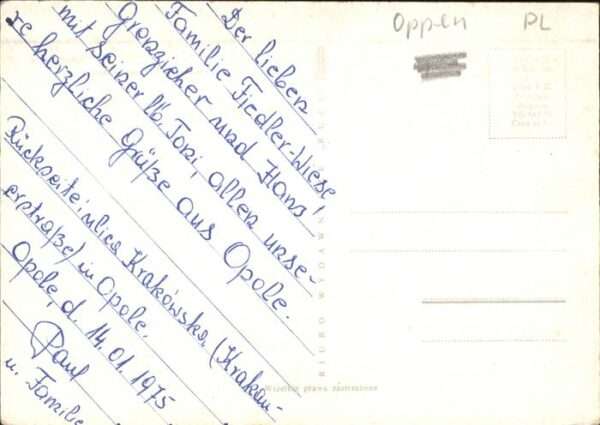 Der lieben
Familie Fiedler-Wiese,
Grenzieher und Hans
mit seiner lb. Toni, allen unse-
re herzliche Grüße aus Opole.
Rückseite: ulica Krakówska (Krakau-
erstraße) in Opole.
Opole, d. 14.01.1975
Paul
u. Familie
Oppeln PL
BIURO WYDAWN
Wszelkie prawa zastrzeżone